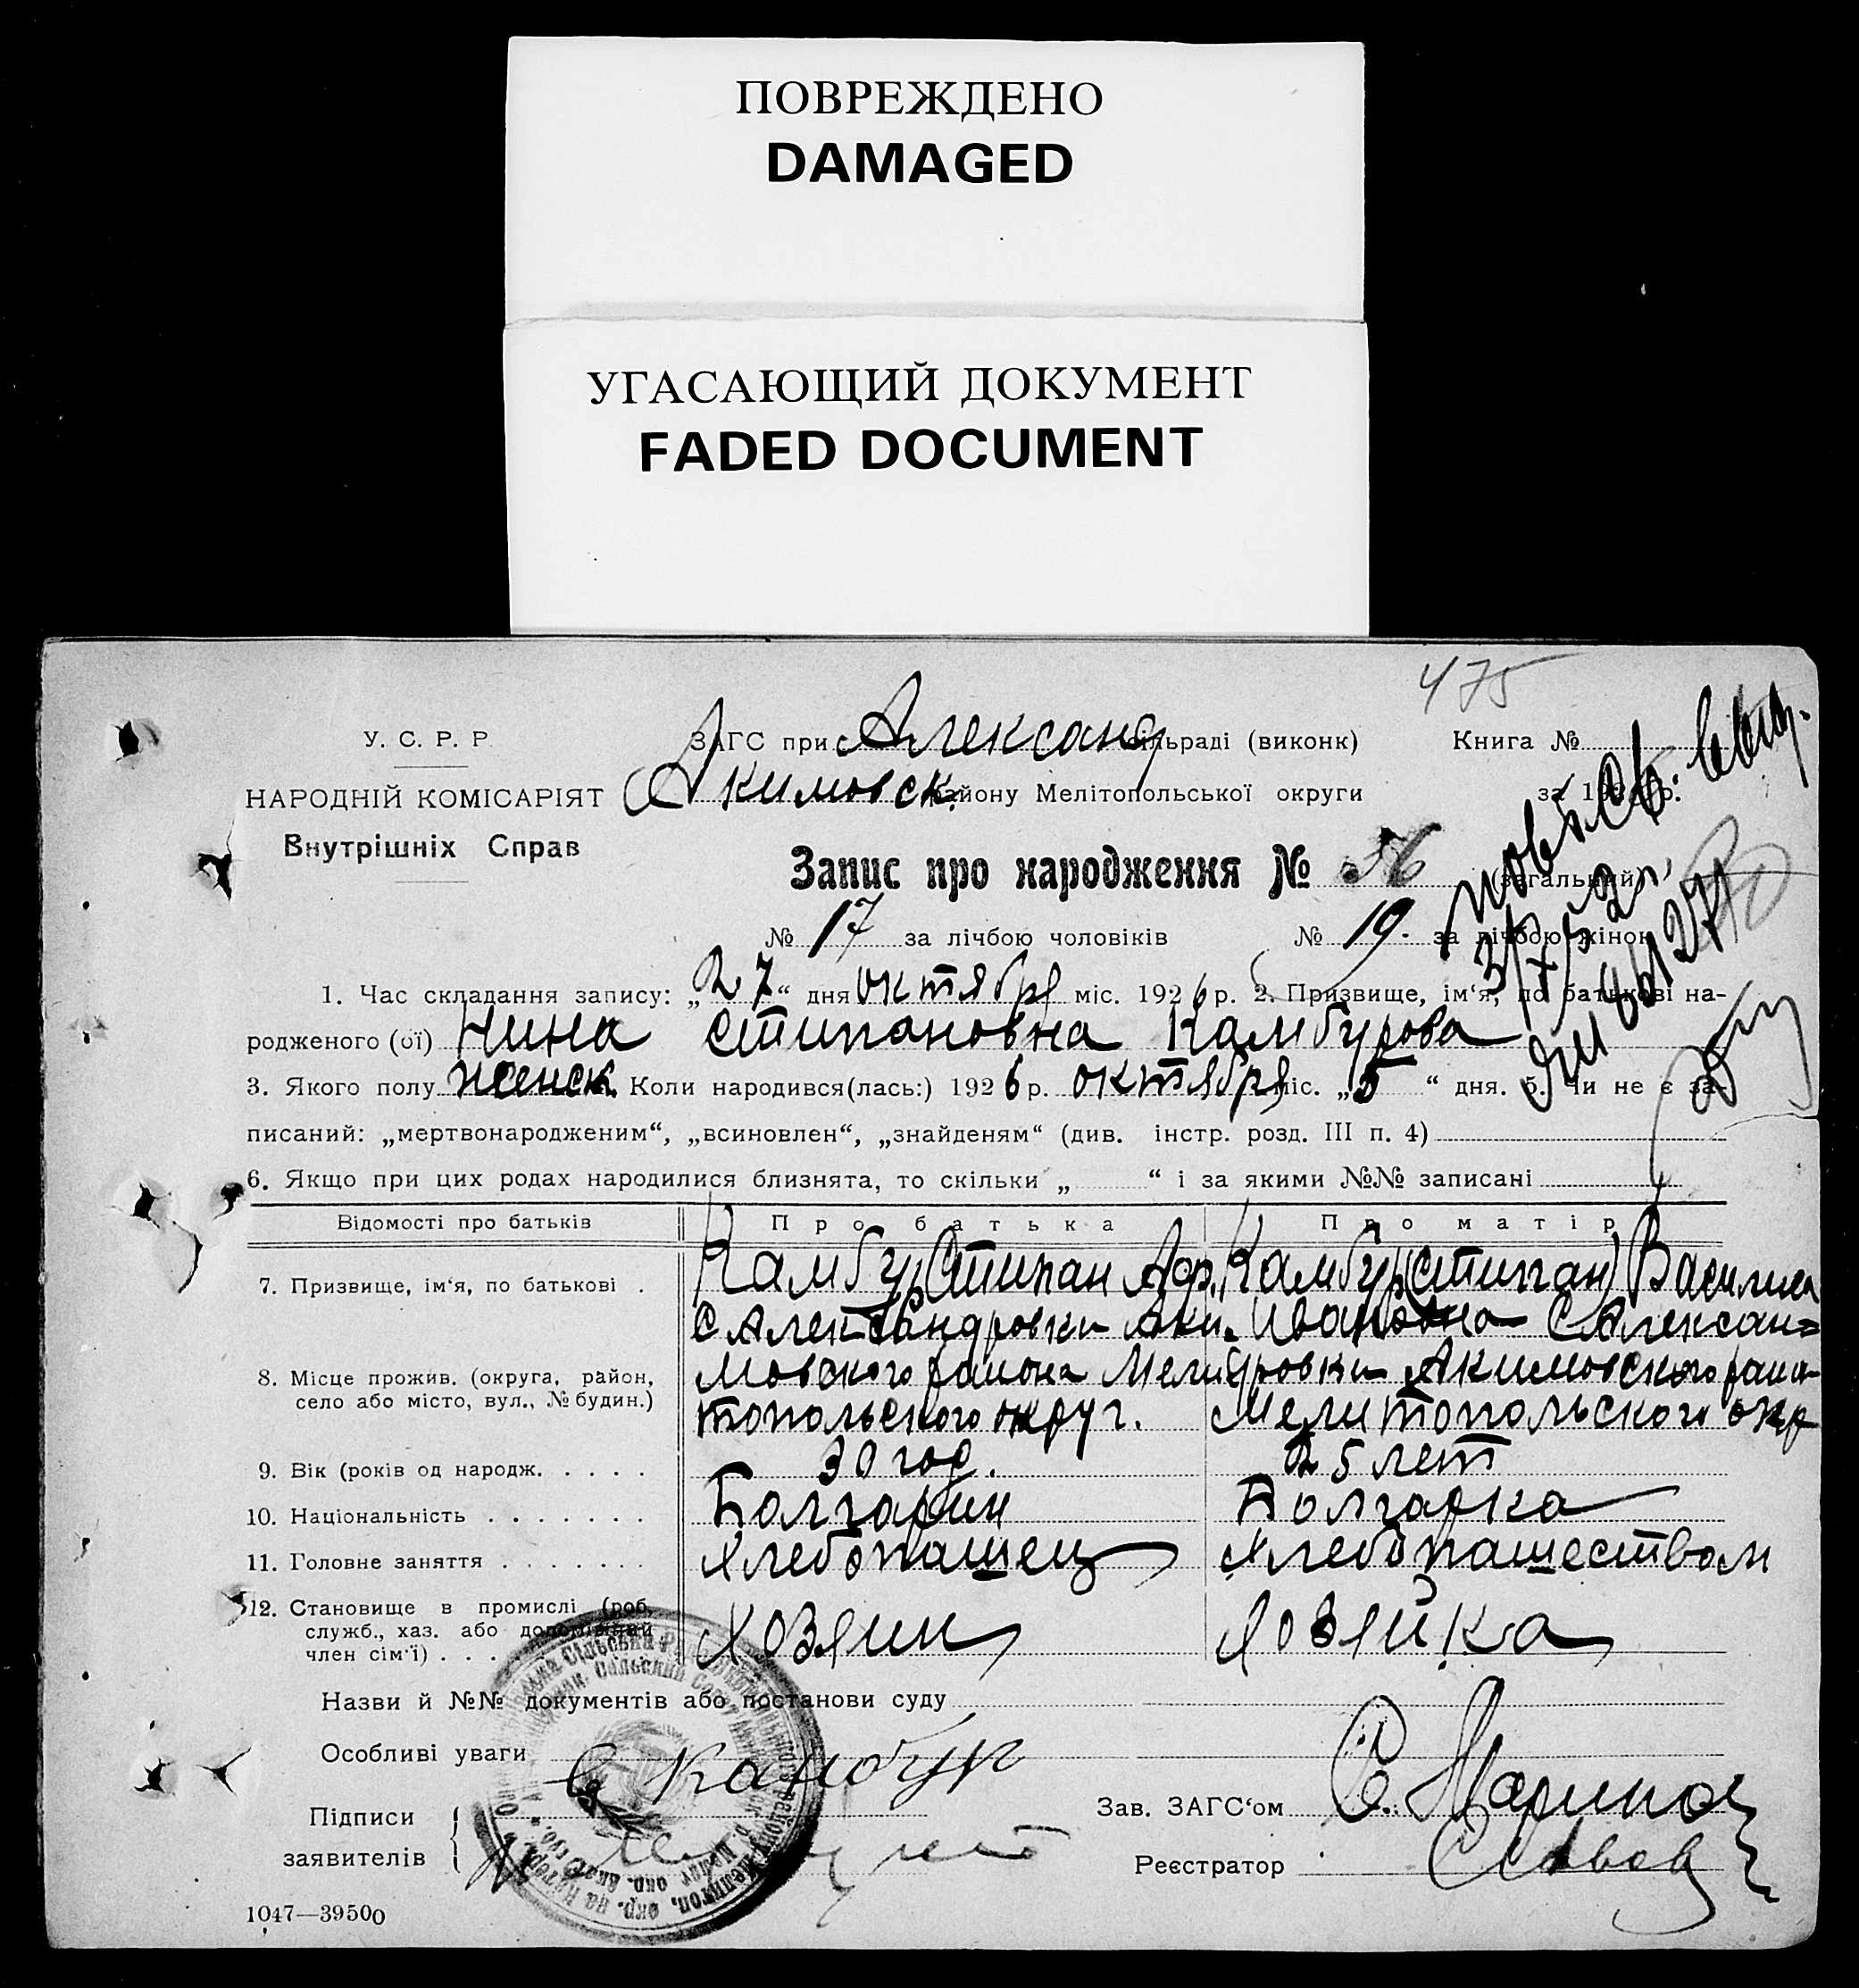 ПОВРЕЖДЕНО
DAMAGED
УГАСАЮЩИЙ ДОКУМЕНТ
FADED DOCUMENT
475
У. С. Р. Р
ЗАГС при Александ сільраді (виконк) Книга №
НАРОДНІЙ КОМІСАРІЯТ Акимовск. району Мелітопольської округи за 192 р.
Внутрішніх Справ
Запис про народження № 36 (загальний)
№ 17 за лічбою чоловіків № 19. за лічбою жінок
1. Час складання запису: „27“ дня октября міс. 1926 р. 2. Призвище, ім‘я, по батькові на-
родженого (ої) Нина Стипановна Камбурова
3. Якого полу женск. Коли народився(лась:) 1926 р. октября міс. „5“ дня. 5. Чи не є за-
писаний: „мертвонародженим“, „всиновлен“, „знайденям“ (див. інстр. розд. III п. 4)
6. Якщо при цих родах народилися близнята, то скільки „ “ і за якими №№ записані
Відомості про батьків Про батька Про матір
7. Призвище, ім‘я, по батькові . Камбур Стипан Аф. Камбур (Стипан) Василиса
С Александровки Аки- Ивановна С Алексан=
8. Місце прожив. (округа, район, мовского района Мели дровки Акимовского райа
село або місто, вул., № будин.) топольского округ. Мелитопольского окр
9. Вік (років од народж. . . . . 30 год. 25 лет
10. Національність . . . . . . . Болгарин Болгарка
11. Головне заняття . . . . . . . Хлебопашец Хлебопашеством
12. Становище в промислі (роб.
служб., хаз. або допоміжний Хозяин Хозяйка
член сім‘ї) . . .
Назви й №№ документів або постанови суду
Особливі уваги
Підписи Зав. ЗАГС‘ом С. Марино
заявителів Реєстратор
1047—39500